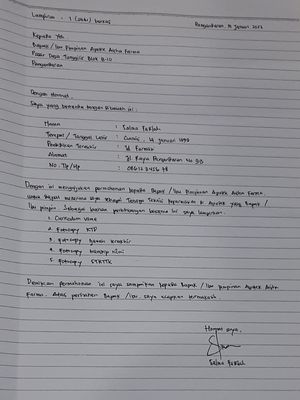 Lampiran : 1 (satu) berkas
Pangandaran, 14 Januari 2022
Kepada Yth
Bapak / Ibu Pimpinan Apotek Farma
Pasar Desa Blok B-10
Pangandaran
Dengan Hormat.
Saya yang bertanda tangan dibawah ini :
Nama : Salma
Tempat / Tanggal Lahir : Ciamis, 14 Januari
Pendidikan Terakhir : Farmasi
Alamat : Jl. Raya Pangandaran No
No. Tlp/Hp :
Dengan ini mengajukan permohonan kepada Bapak / Ibu Pimpinan Apotek Farma
untuk dapat menerima saya Tenaga Teknis Kefarmasian di Apotek yang Bapak /
Ibu pimpin. Sebagai bahan pertimbangan bersama ini saya lampirkan :
1. Curiculum Vitae
2. Fotocopy KTP
3. Fotocopy Ijazah terakhir
4. Fotocopy transkip nilai
5. Fotocopy STRTTK
Demikian permohonan ini saya sampaikan kepada Bapak / Ibu Pimpinan Apotek
Farma. Atas perhatian Bapak / Ibu, saya ucapkan terimakasih.
Hormat saya.
Salma